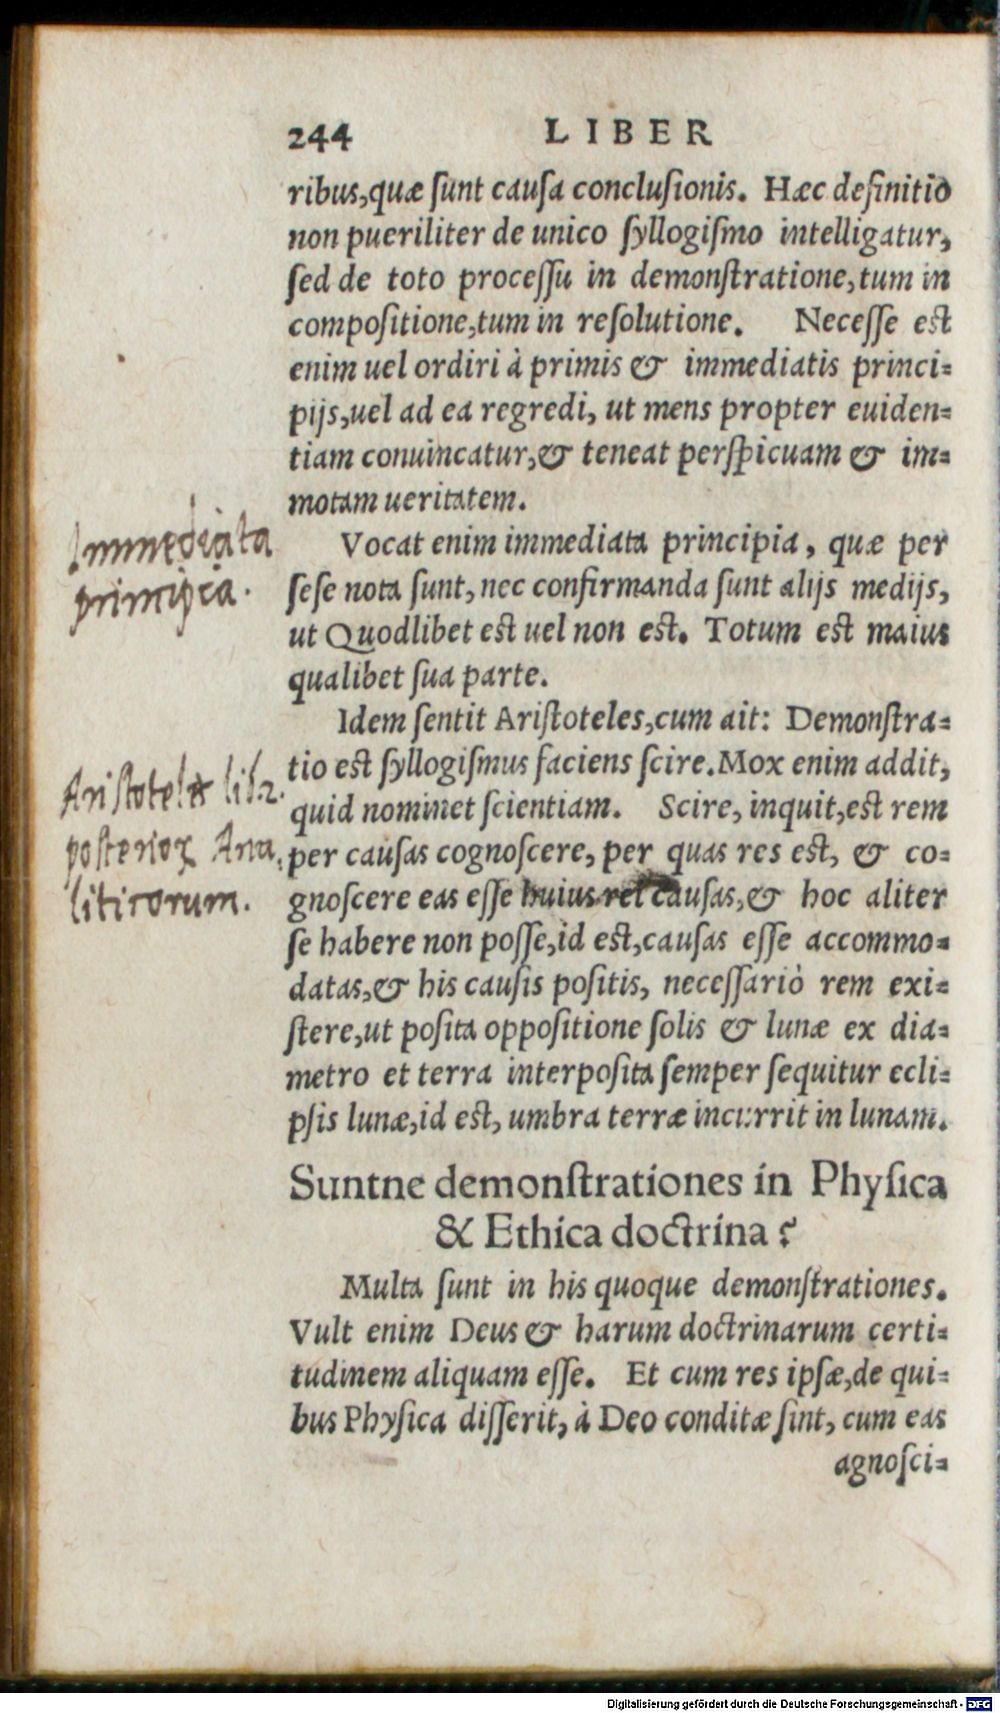 244 LIBER
ribus,quæ ſunt cauſa concluſionis. Hæc definitio
non pueriliter de unico ſyllogiſmo intelligatur,
ſed de toto proceſſu in demonſtratione,tum in
compoſitione,tum in reſolutione. Neceſſe est
enim uel ordiri à primis & immediatis princi=
pijs,uel ad ea regredi, ut mens propter euiden=
tiam conuincatur,& teneat perſpicuam & im=
motam ueritatem.
Immediata
principia.
Vocat enim immediata principia, quæ per
ſeſe nota ſunt, nec confirmanda ſunt alijs medijs,
ut Quodlibet est uel non est. Totum est maius
qualibet ſua parte.
Idem ſentit Ariſtoteles,cum ait: Demonſtra=
tio est ſyllogiſmus faciens ſcire. Mox enim addit,
quid nominet ſcientiam. Scire, inquit,est rem
per cauſas cognoſcere, per quas res est, & co=
gnoſcere eas eſſe huius rei cauſas,& hoc aliter
ſe habere non poſſe,id est,cauſas eſſe accommo=
datas,& his cauſis poſitis, neceſſariò rem exi=
ſtere,ut poſita oppoſitione ſolis & lunæ ex dia=
metro et terra interpoſita ſemper ſequitur ecli=
pſis lunæ,id est, umbra terræ incurrit in lunam.
Ariſtoteles lib. 2.
posterioꝝ Ana
liticorum.
Suntne demonſtrationes in Phyſica
& Ethica doctrina?
Multa ſunt in his quoque demonſtrationes.
Vult enim Deus & harum doctrinarum certi=
tudinem aliquam eſſe. Et cum res ipſæ,de qui=
bus Phyſica diſſerit, à Deo conditæ ſint, cum eas
agnoſci=
Digitalisierung gefördert durch die Deutsche Forschungsgemeinschaft - DFG